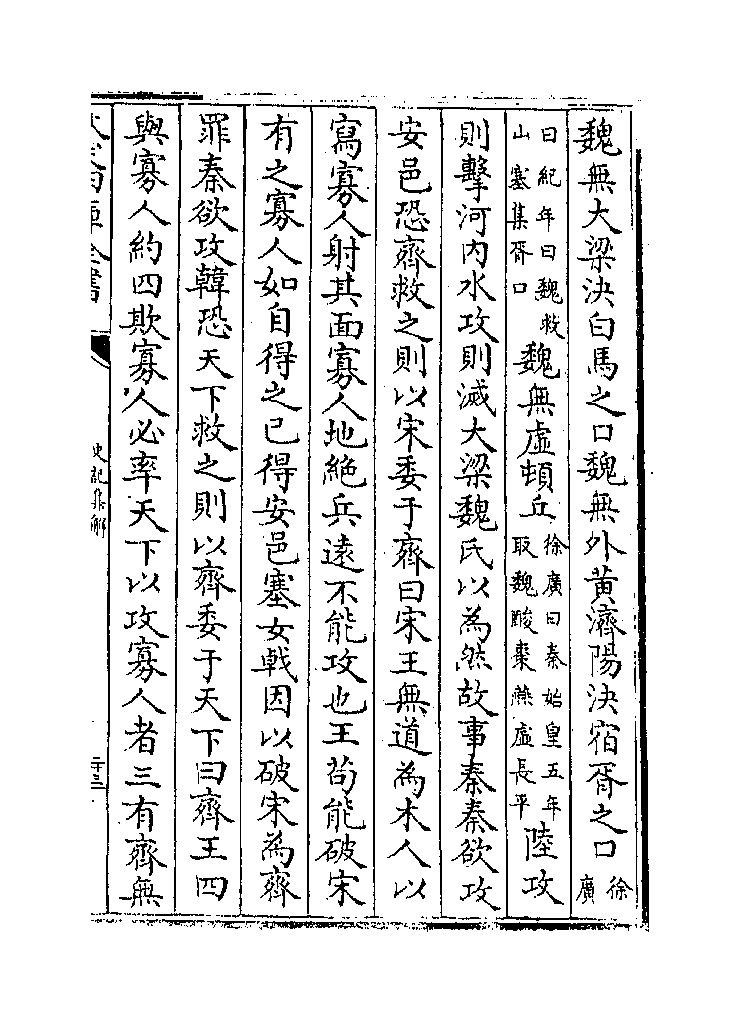 魏無大梁決白馬之口魏無外黃濟陽決宿胥之口徐廣
曰紀年曰魏救山塞集胥口魏無虛頓丘徐廣曰秦始皇五年取魏酸棗燕虛長平陸攻
則擊河内水攻則滅大梁魏氏以為然故事秦秦欲攻
安邑恐齊救之則以宋委于齊曰宋王無道為木人以
寫寡人射其面寡人地絶兵遠不能攻也王苟能破宋
有之寡人如自得之已得安邑塞女戟因以破宋為齊
罪秦欲攻韓恐天下救之則以齊委于天下曰齊王四
與寡人約四欺寡人必率天下以攻寡人者三有齊無
四庫全書
史記集解